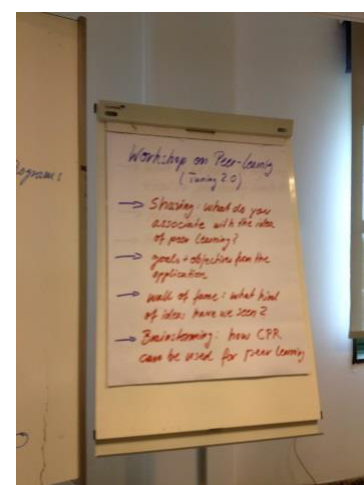 ograms
Workshop on Peer-learning
(Tuning 2.0)
→ Sharing: what do you
associate with the idea
of peer learning?
→ goals + objectives from the
application
→ wall of fame: what kind
of ideas have we seen?
→ Brainstorming: how CPR
can be used for peer learning